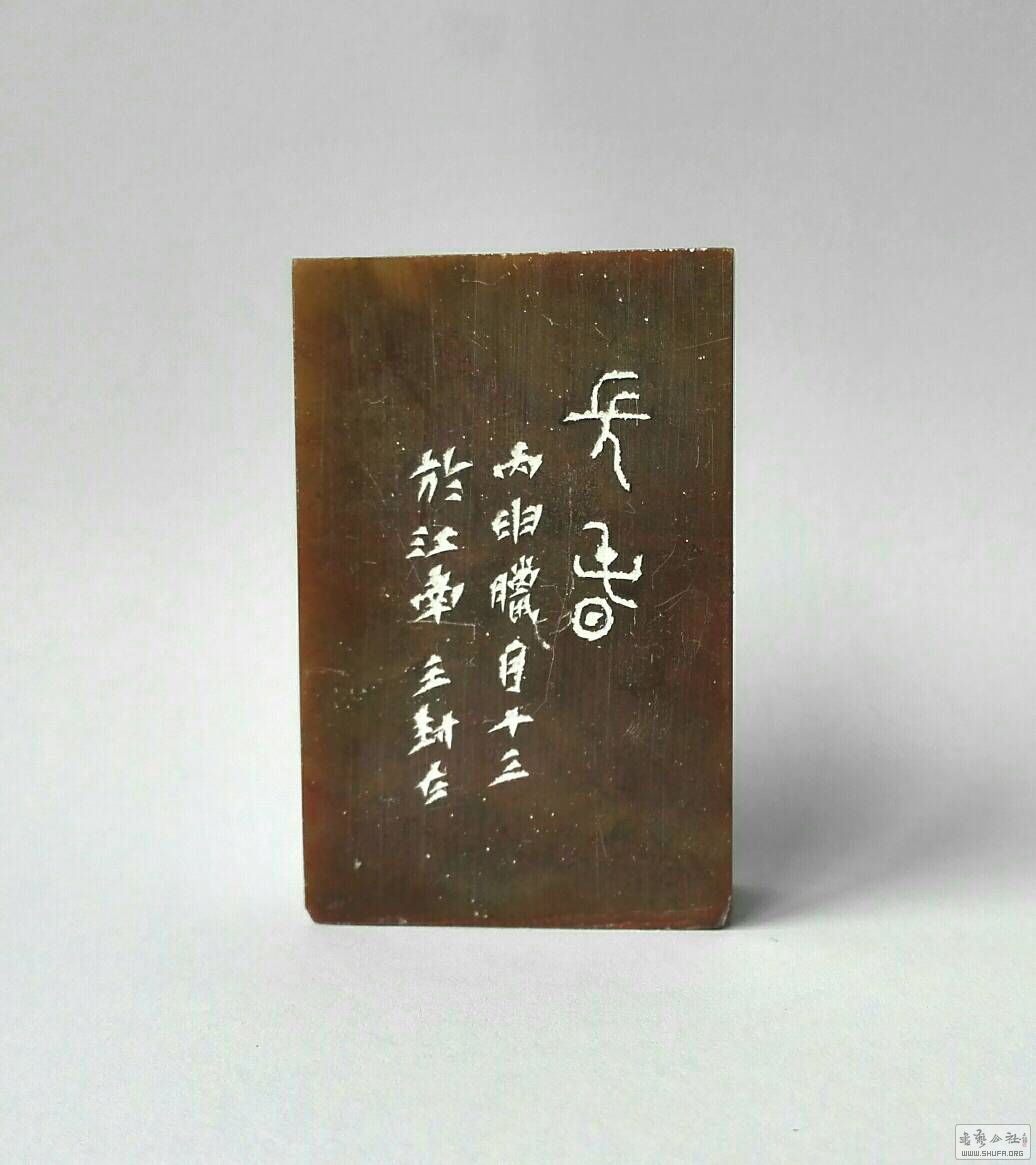 長春
丙申臘月十三
於江
書藝公社
WWW.SHUFA.ORG